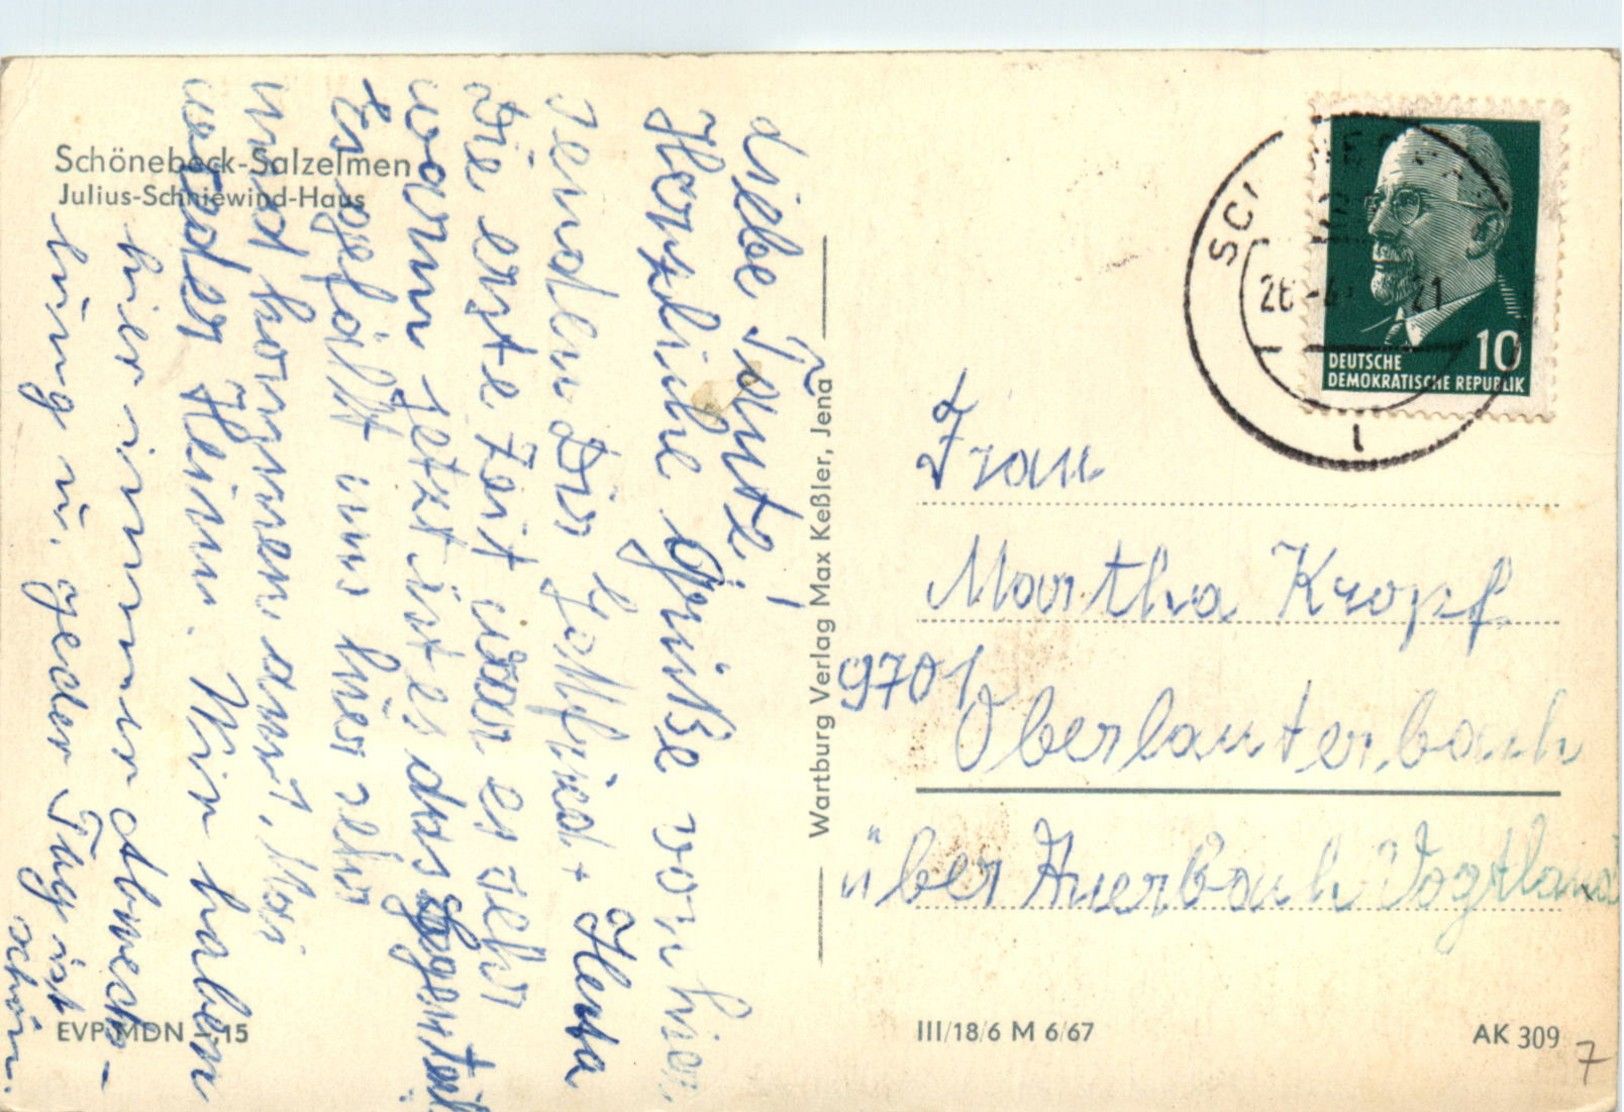 Schönebeck-Salzelmen
Julius-Schniewind-Haus
Liebe Tante!
Herzliche Grüße von hier
senden Dir Gottfried + Herta
Die erste Zeit war es sehr
warm jetzt ist es das Gegenteil
Es gefällt uns hier sehr
und kommen am 1. Mai
wieder Heim. Wir haben
hier immer Abwechs-
lung u. jeder Tag ist
schön.
Wartburg Verlag Max Keßler, Jena
DEUTSCHE
DEMOKRATISCHE REPUBLIK
10
21
Frau
Martha Kropf
9701
Oberlauterbach
über Auerbach Vogtland
EVP MDN -.15
III/18/6 M 6/67
AK 309
7